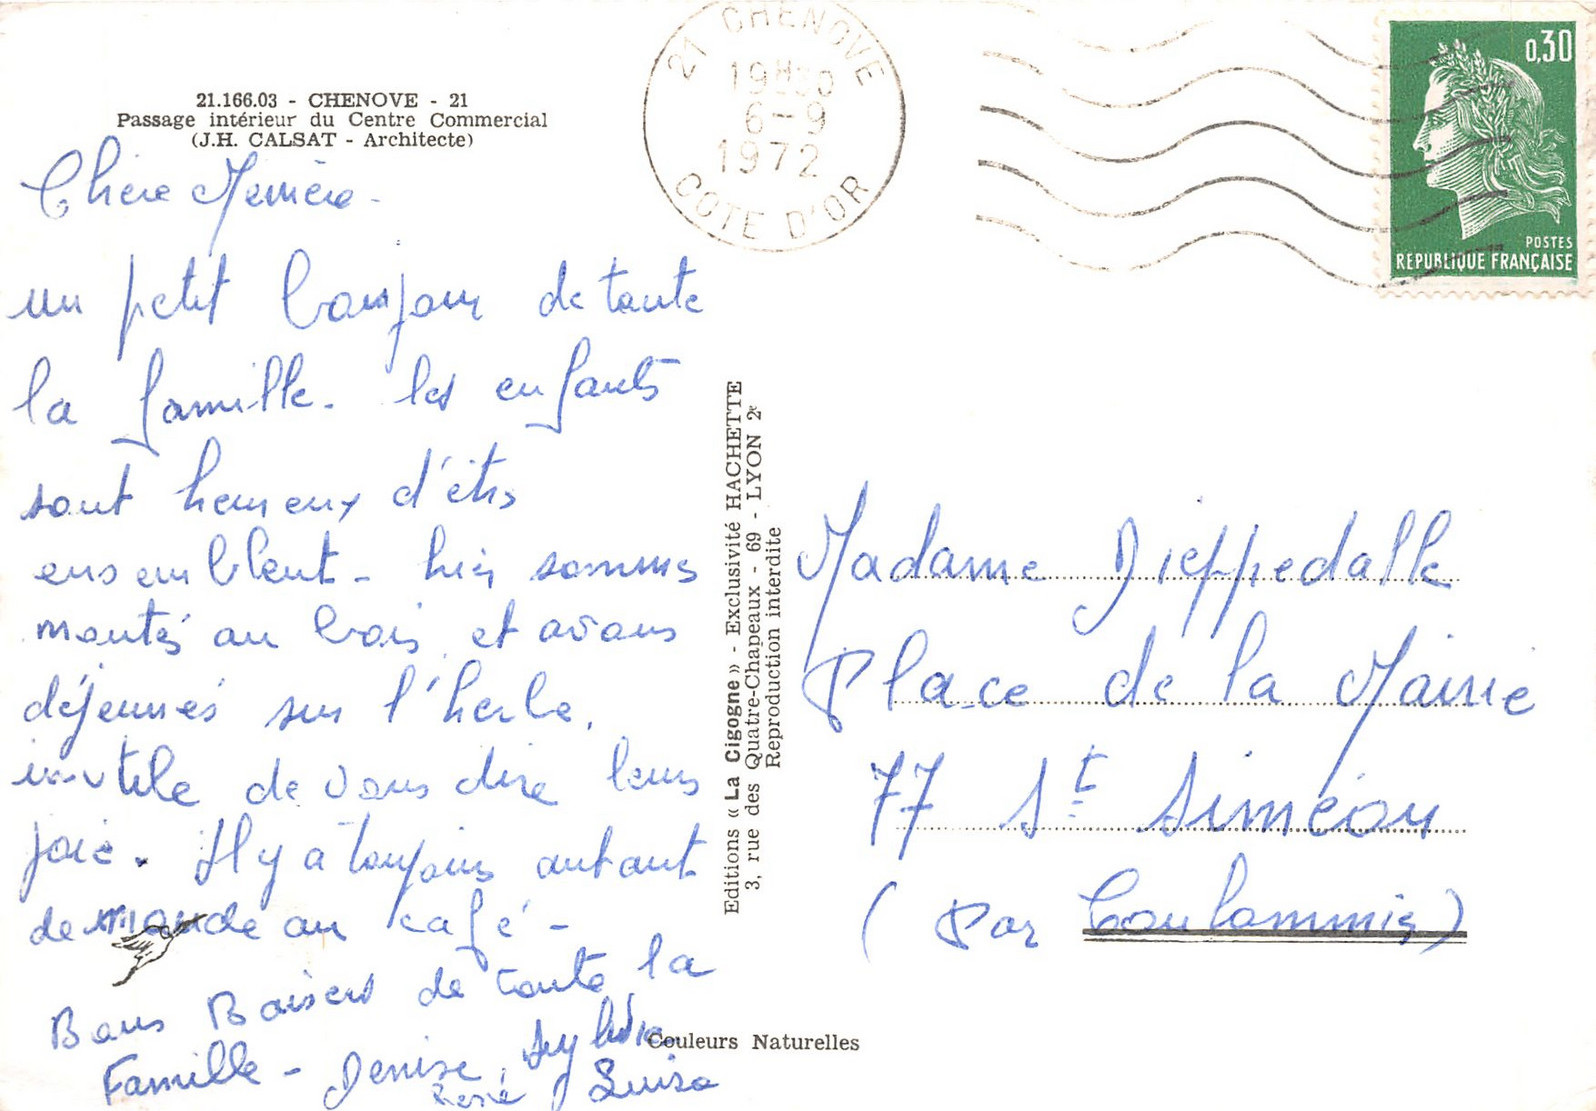 21.166.03 - CHENOVE - 21
Passage intérieur du Centre Commercial
(J.H. CALSAT - Architecte)
Chère Mémère -
un petit bonjour de toute
la famille. les enfants
sont heureux d'être
ensemblent - hier sommes
montés au bois, et avons
déjeunés sur l'herbe.
inutile de vous dire leurs
joie. Il y a toujours autant
de monde au café -
Bons Baisers de toute la
Famille - Denise, Sylvie
René Luisa
21 CHENOVE
19H30
6-9
1972
COTE D'OR
0,30
POSTES
REPUBLIQUE FRANÇAISE
Editions « La Cigogne » - Exclusivité HACHETTE
3, rue des Quatre-Chapeaux - 69 - LYON 2e
Reproduction interdite
Madame Dieppedalle
Place de la Mairie
77 St Siméon
(Par Coulommiers)
Couleurs Naturelles